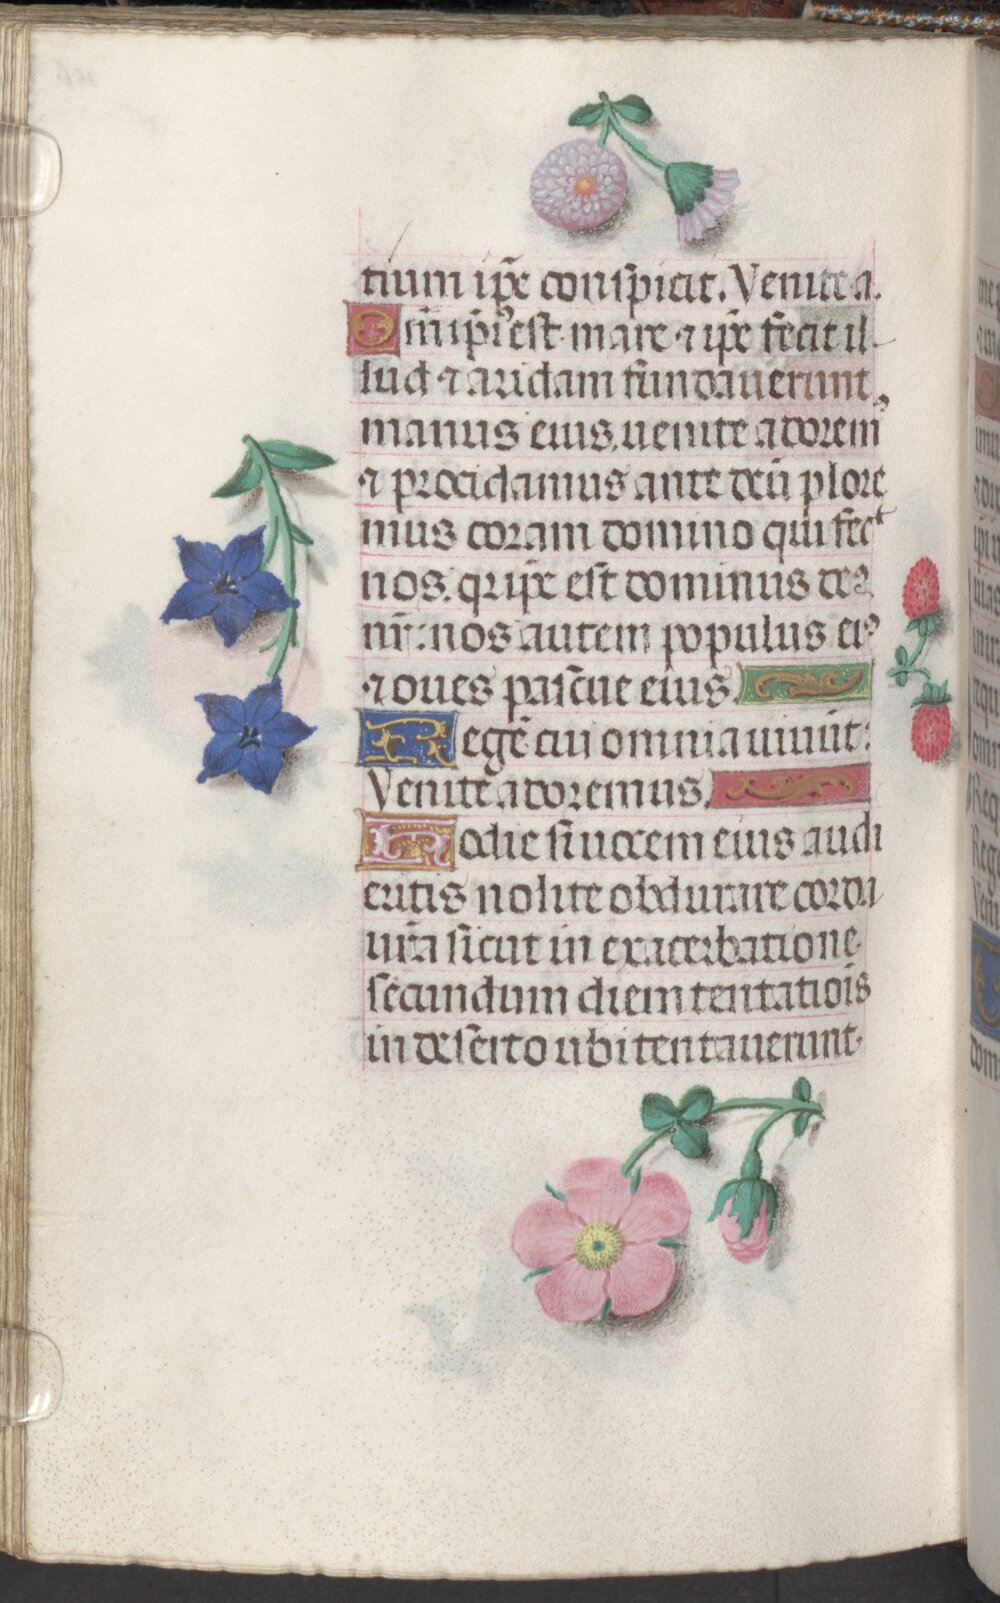 tium ip̄e conspicit. Venite a.
Qm̄ ip̄ius est mare ⁊ ip̄e fecit il
lud ⁊ aridam fundauerunt
manus eius. uenite adorem⁹
⁊ procidamus ante deū plore
mus coram domino qui fecᵗ
nos. qꝛ ip̄e est dominus deꝰ
nr̄: nos autem populus eiꝰ
⁊ oues pascue eius.
Regē cui omnia uiuūt:
Venite adoremus.
Hodie si uocem eius audi
eritis nolite obdurare corda
ur̄a sicut in exacerbatione
secundum diem tentatiōis
in deserto ubi tentauerunt